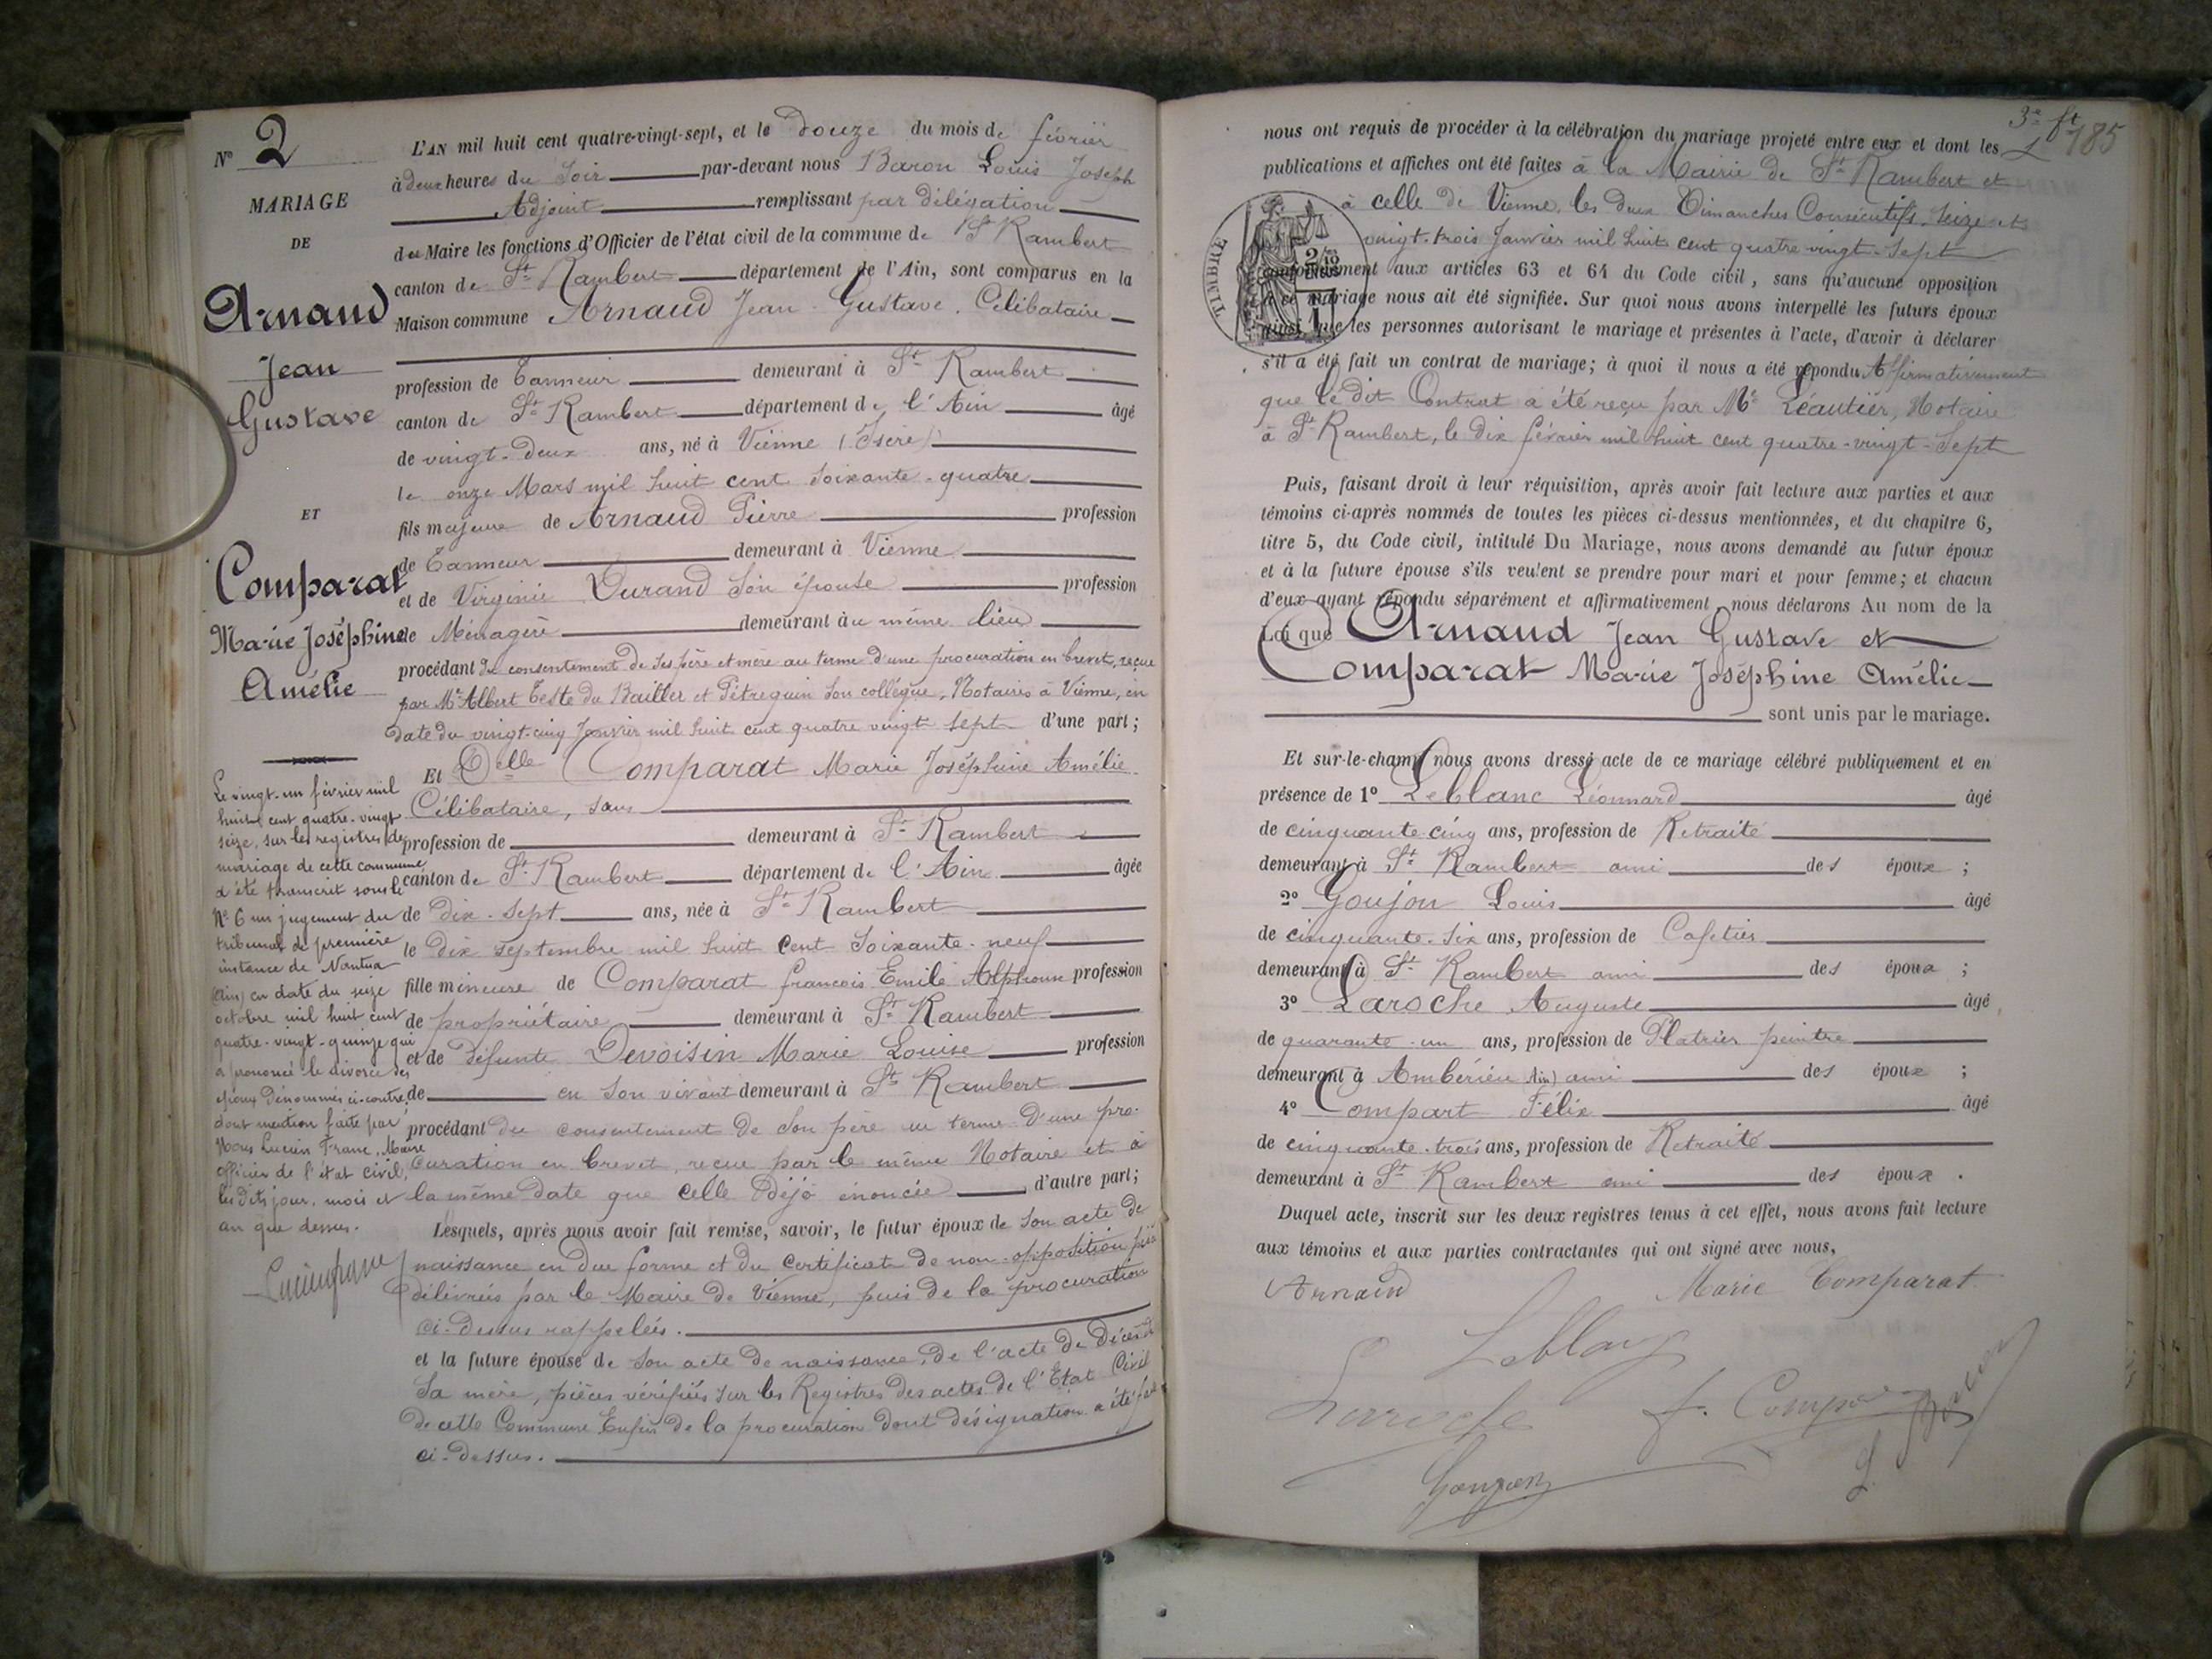 N° 2
MARIAGE
DE
Arnaud
Jean
Gustave
ET
Comparat
Marie Joséphine
Amélie
Le vingt-un février mil
huit cent quatre-vingt
seize, sur les registres de
mariage de cette commune
a été transcrit sous le
N° 6 un jugement du
tribunal de première
instance de Nantua
(Ain) en date du seize
octobre mil huit cent
quatre-vingt-quinze qui
a prononcé le divorce des
époux dénommés ci-contre,
dont mention faite par
Nous Lucien Franc, Maire
officier de l'état civil,
les dits jour, mois et
an que dessus.
L'AN mil huit cent quatre-vingt-sept, et le douze du mois de février
à deux heures du Soir par-devant nous Baron Louis Joseph
Adjoint remplissant par délégation
du Maire les fonctions d'Officier de l'état civil de la commune de St Rambert
canton de St Rambert département de l'Ain, sont comparus en la
Maison commune Arnaud Jean-Gustave. Célibataire
profession de Tanneur demeurant à St Rambert
canton de St Rambert département de l'Ain âgé
de vingt-deux ans, né à Vienne (Isère)
le onze Mars mil huit cent soixante-quatre
fils majeur de Arnaud Pierre profession
de Tanneur demeurant à Vienne
et de Virginie Durand son épouse profession
de Ménagère demeurant au même lieu
procédant du consentement de ses père et mère au terme d'une procuration en brevet, reçue
par Me Albert Teste du Bailler et Pétrequin son collègue, Notaires à Vienne, en
date du vingt-cinq Janvier mil huit cent quatre vingt sept d'une part;
Et Delle Comparat Marie Joséphine Amélie.
Célibataire, sans
profession de demeurant à St Rambert
canton de St Rambert département de l'Ain âgée
de dix-sept ans, née à St Rambert
le dix septembre mil huit cent soixante-neuf
fille mineure de Comparat françois Emile Alphonse profession
de propriétaire demeurant à St Rambert
et de défunte Devoisin Marie Louise profession
de en son vivant demeurant à St Rambert
procédant du consentement de son père au terme d'une pro-
curation en brevet, reçue par le même Notaire et à
la même date que celle déjà énoncée d'autre part;
Lesquels, après nous avoir fait remise, savoir, le futur époux de son acte de
naissance en due forme et du certificat de non-opposition
délivrés par le Maire de Vienne, puis de la procuration
ci-dessus rappelée.
et la future épouse de son acte de naissance, de l'acte de décès de
sa mère, pièces vérifiées sur les Registres des actes de l'Etat Civil
de cette Commune Enfin de la procuration dont désignation a été faite
ci-dessus.
3e ft
185
nous ont requis de procéder à la célébration du mariage projeté entre eux et dont les
publications et affiches ont été faites à la Mairie de St Rambert et
à celle de Vienne, les deux Dimanches Consécutifs, seize et
vingt-trois Janvier mil huit cent quatre-vingt-sept
TIMBRE
conformément aux articles 63 et 64 du Code civil, sans qu'aucune opposition
à ce mariage nous ait été signifiée. Sur quoi nous avons interpellé les futurs époux
ainsi que les personnes autorisant le mariage et présentes à l'acte, d'avoir à déclarer
s'il a été fait un contrat de mariage; à quoi il nous a été répondu Affirmativement
que le dit Contrat a été reçu par Me Léautier, Notaire
à St Rambert, le dix février mil huit cent quatre-vingt-sept
Puis, faisant droit à leur réquisition, après avoir fait lecture aux parties et aux
témoins ci-après nommés de toutes les pièces ci-dessus mentionnées, et du chapitre 6,
titre 5, du Code civil, intitulé Du Mariage, nous avons demandé au futur époux
et à la future épouse s'ils veulent se prendre pour mari et pour femme; et chacun
d'eux ayant répondu séparément et affirmativement, nous déclarons Au nom de la
Loi que Arnaud Jean Gustave et
Comparat Marie Joséphine Amélie
sont unis par le mariage.
Et sur-le-champ nous avons dressé acte de ce mariage célébré publiquement et en
présence de 1° Leblanc Léonnard âgé
de cinquante cinq ans, profession de Retraité
demeurant à St Rambert ami des époux ;
2° Goujon Louis âgé
de cinquante-six ans, profession de Cafetier
demeurant à St Rambert ami des époux ;
3° Laroche Auguste âgé
de quarante-un ans, profession de Platrier peintre
demeurant à Ambérieu (Ain) ami des époux ;
4° Compart Félix âgé
de cinquante-trois ans, profession de Retraité
demeurant à St Rambert ami des époux .
Duquel acte, inscrit sur les deux registres tenus à cet effet, nous avons fait lecture
aux témoins et aux parties contractantes qui ont signé avec nous,
Arnaud Marie Comparat
Leblanc
Laroche
Goujon